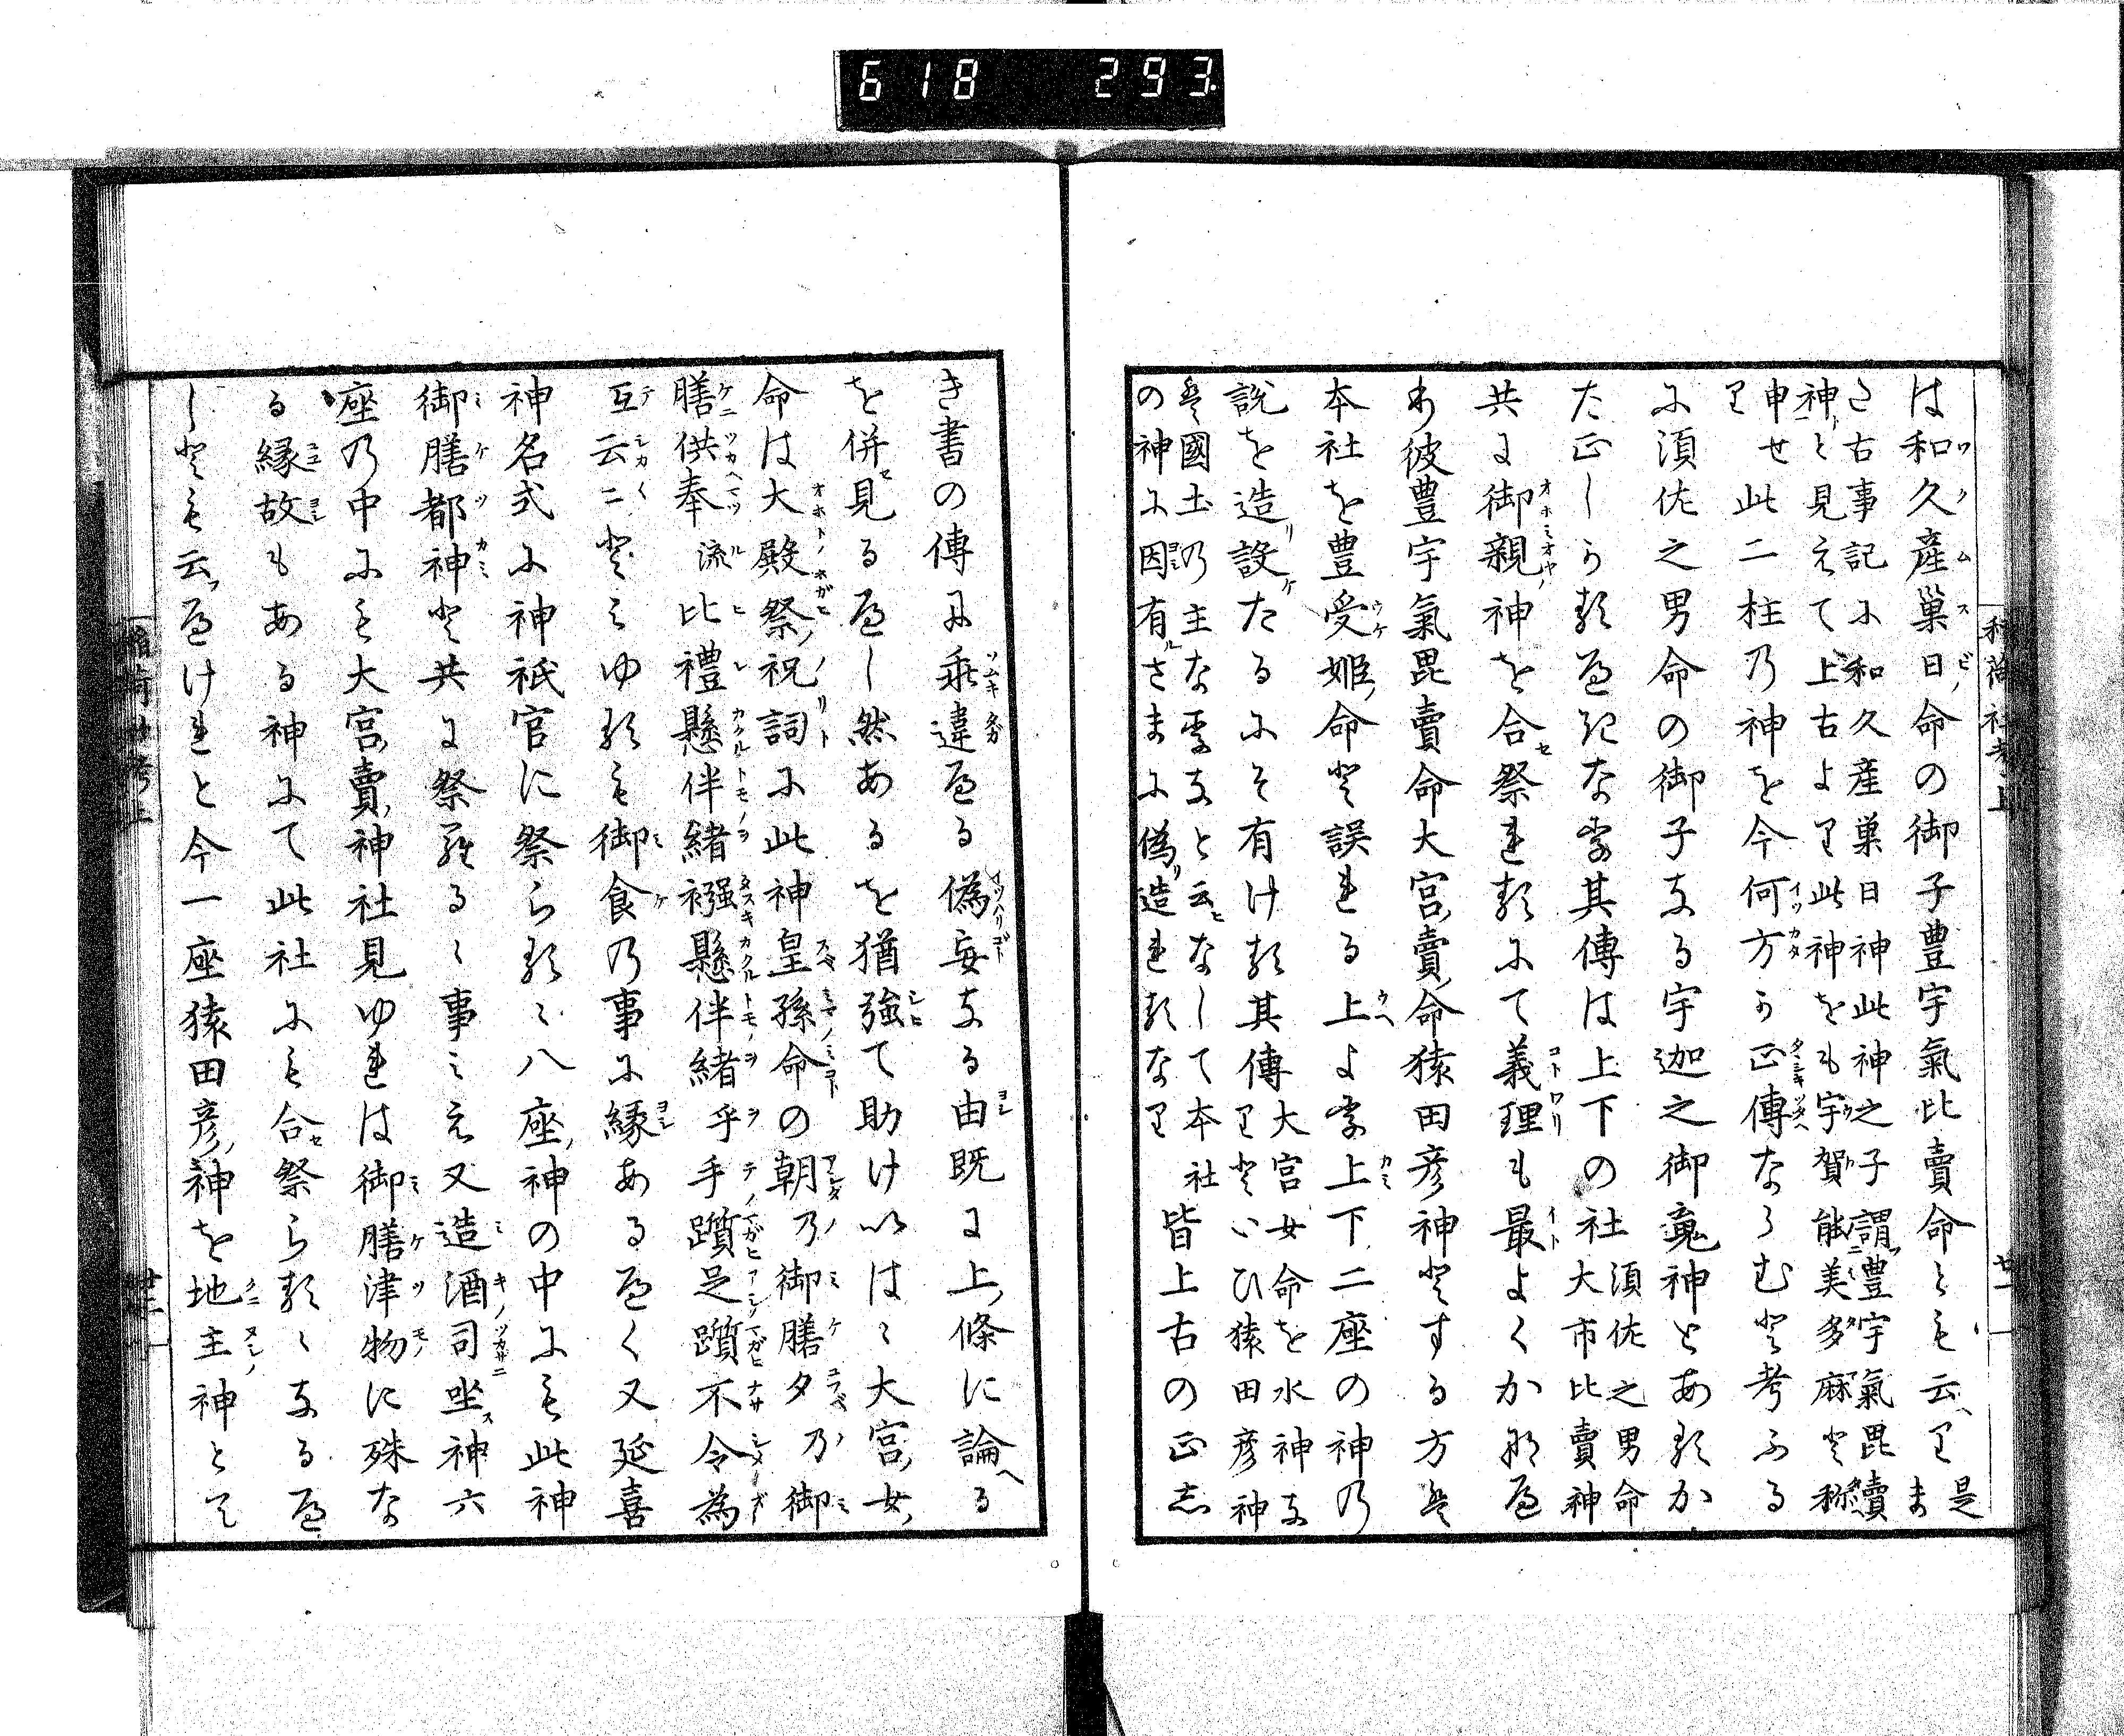 618 293
は和久産巣日命の御子豊宇氣比賣命とも云へり是ま
さ古事記に和久産巣日神此神之子謂豊宇氣毘賣
神と見えて上古より此神をも宇賀能美多麻と称
申せ此二柱の神を今何方か正傳ならむと考ふる
り
に須佐之男命の御子なる宇迦之御魂神とあるか
た正しかるべきなり其傳は上下の社須佐之男命大市比賣神
共に御親神を合せ祭れるにて義理も最よくかなへ
り彼豊宇氣毘賣命大宮賣命猿田彦神とする方は
本社を豊受姫命と誤れる上より上下二座の神の
説を造り設けたるにそ有ける其傳大宮女命を水神なりといひ猿田彦神
は國土の主なりなと云ひなして本社
の神に因有るさまに偽り造れるなり皆上古の正し
き書の傳に乖違へる偽妄なる由既に上條に論へる
を併せ見るべし然あるを猶強て助け以はゝ大宮女
命は大殿祭祝詞に此神皇孫命の朝乃御膳夕乃御
膳供奉流比禮懸伴緒襁懸伴緒乎手躓足躓不令為
互云云とみゆるも御食の事に縁あるべく又延喜
神名式に神祇官に祭らるゝ八座神の中にも此神
御膳都神と共に祭るゝ事みえ又造酒司坐神六
座の中にも大宮賣神社見ゆれは御膳津物に殊な
る縁故もある神にて此社にも合せ祭らるゝなるべ
しとも云ふべけれと今一座猿田彦神を地主神とて